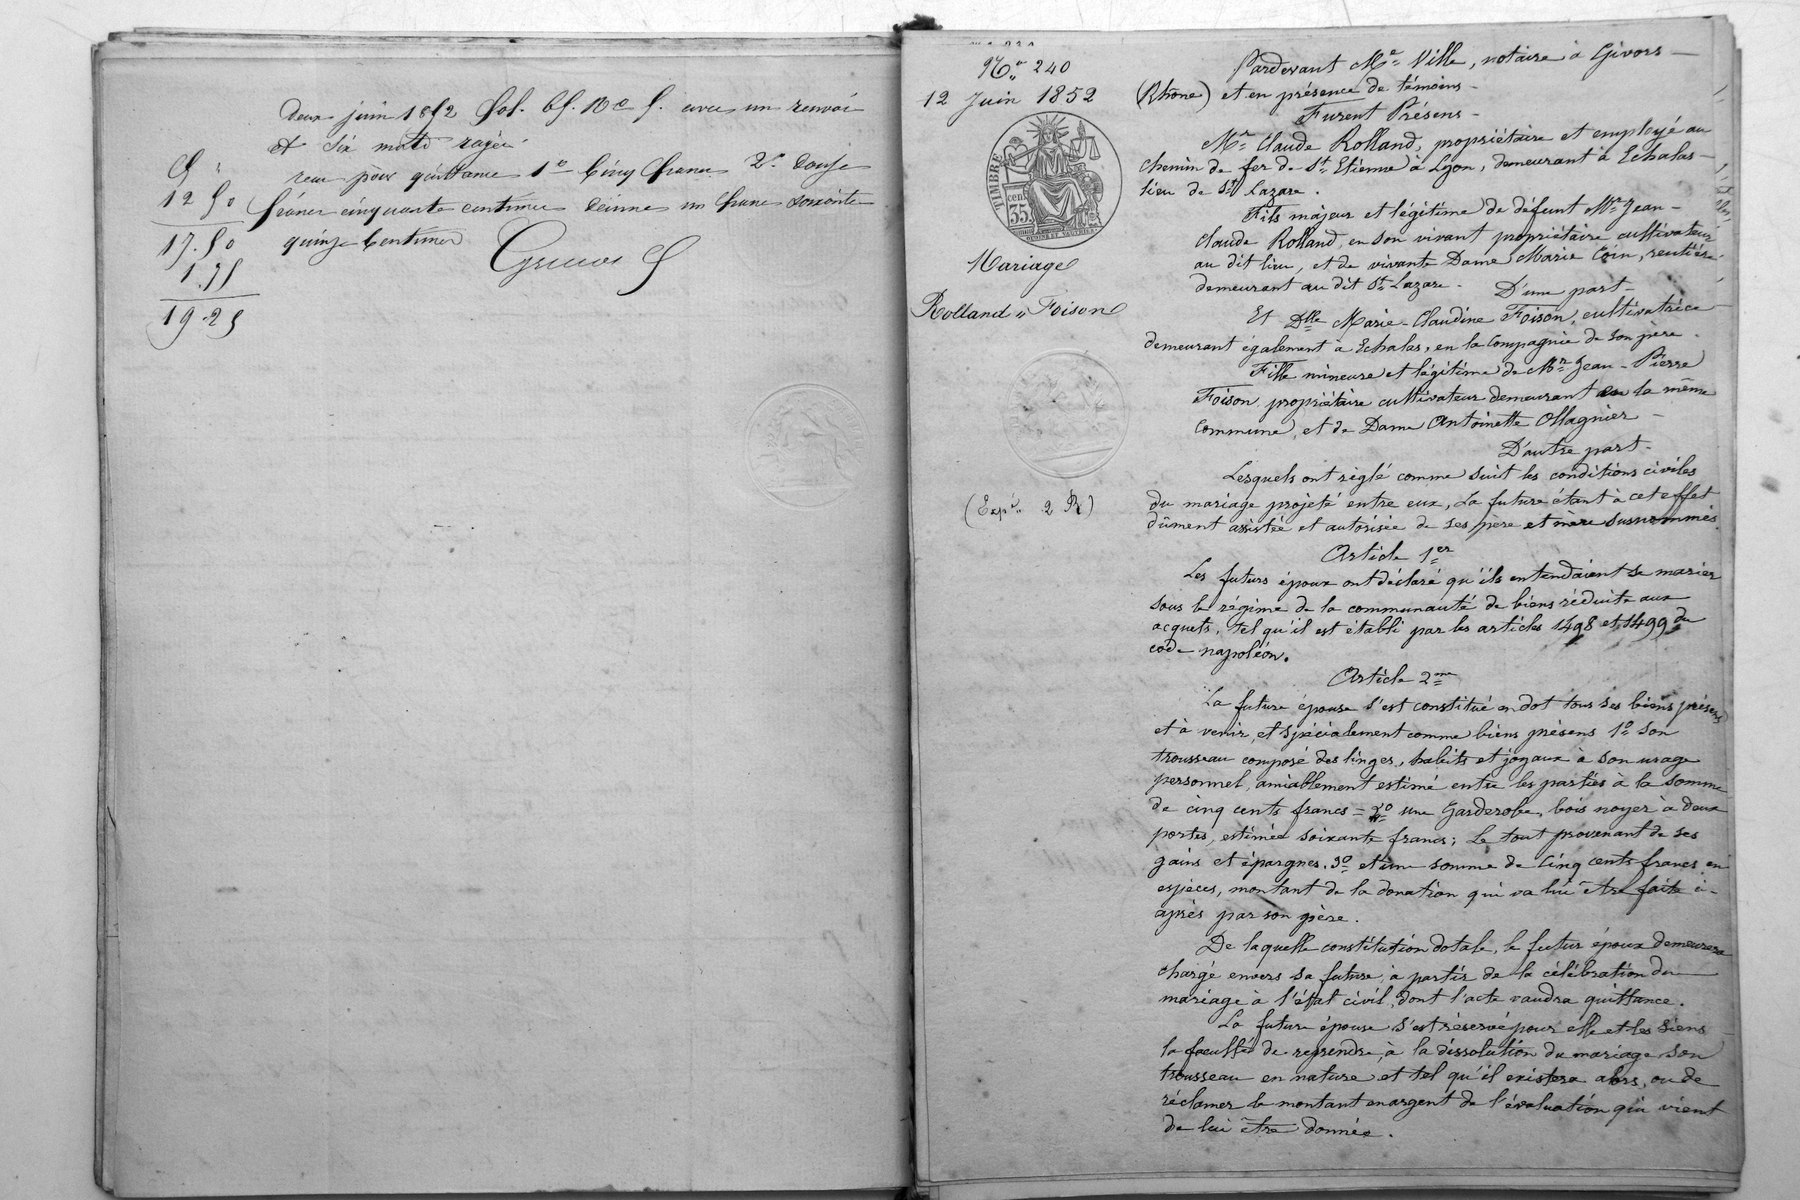 deux juin 1852 fol. 65. Ro C 5. avec un renvoi
et six mots rayés
reçu pour quittance 1o Cinq francs 2o Douze
francs cinquante centimes Décime un franc soixante
quinze Centimes
5 "
12 50
17.50
1.75
19.25
No 240
12 Juin 1852
TIMBRE
cen 35
Mariage
Rolland " Foison
(Expé 2 R)
Pardevant Me Ville, notaire à Givors
(Rhône) et en présence de témoins
Furent Présens
Mr Claude Rolland, propriétaire et employé au
chemin de fer de St Etienne à Lyon, demeurant à Echalas
lieu de St Lazare.
Fils majeur et légitime de défunt Mr Jean-
Claude Rolland, en son vivant propriétaire cultivateur
au dit lieu, et de vivante Dame Marie Coin, rentière
demeurant au dit St Lazare. D'une part
Et Dlle Marie-Claudine Foison, cultivatrice
demeurant également à Echalas, en la Compagnie de son père.
Fille mineure et légitime de Mr Jean-Pierre
Foison propriétaire cultivateur demeurant en la même
Commune, et de Dame Antoinette Ollagnier
D'autre part
Lesquels ont réglé comme suit les conditions civiles
du mariage projeté entre eux, La future étant à cet effet
dûment assistée et autorisée de ses père et mère susnommés.
Article 1er
Les futurs époux ont déclaré qu'ils entendaient se marier
sous le régime de la communauté de biens réduite aux
acquets, tel qu'il est établi par les articles 1498 et 1499 du
code napoléon.
Article 2me
La future épouse s'est constitué en dot tous ses biens présens
et à venir, et spécialement comme biens présens 1o Son
trousseau composé des linges, habits et joyaux à son usage
personnel, amiablement estimé entre les parties à la somme
de cinq cents francs = 2o une Garderobe, bois noyer à deux
portes, estimée soixante francs; Le tout provenant de ses
gains et épargnes. 3o et une somme de Cinq cents francs en
espèces, montant de la donation qui va lui être faite ci-
après par son père.
De laquelle constitution dotale, le futur époux demeurera
chargé envers sa future, à partir de la célébration du
mariage à l'état civil, dont l'acte vaudra quittance.
La future épouse s'est réservé pour elle et les siens
la faculté de reprendre, à la dissolution du mariage son
trousseau en nature et tel qu'il existera alors, ou de
réclamer le montant en argent de l'évaluation qui vient
de lui etre donnée.